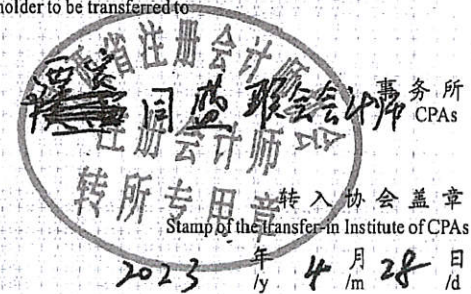 holder to be transferred to
省注册会计师协会
同盛联合会计师事务所
CPAs
注册会计师
转所专用章
转入协会盖章
Stamp of the transfer-in Institute of CPAs
2023 年 4 月 28 日
/y /m /d